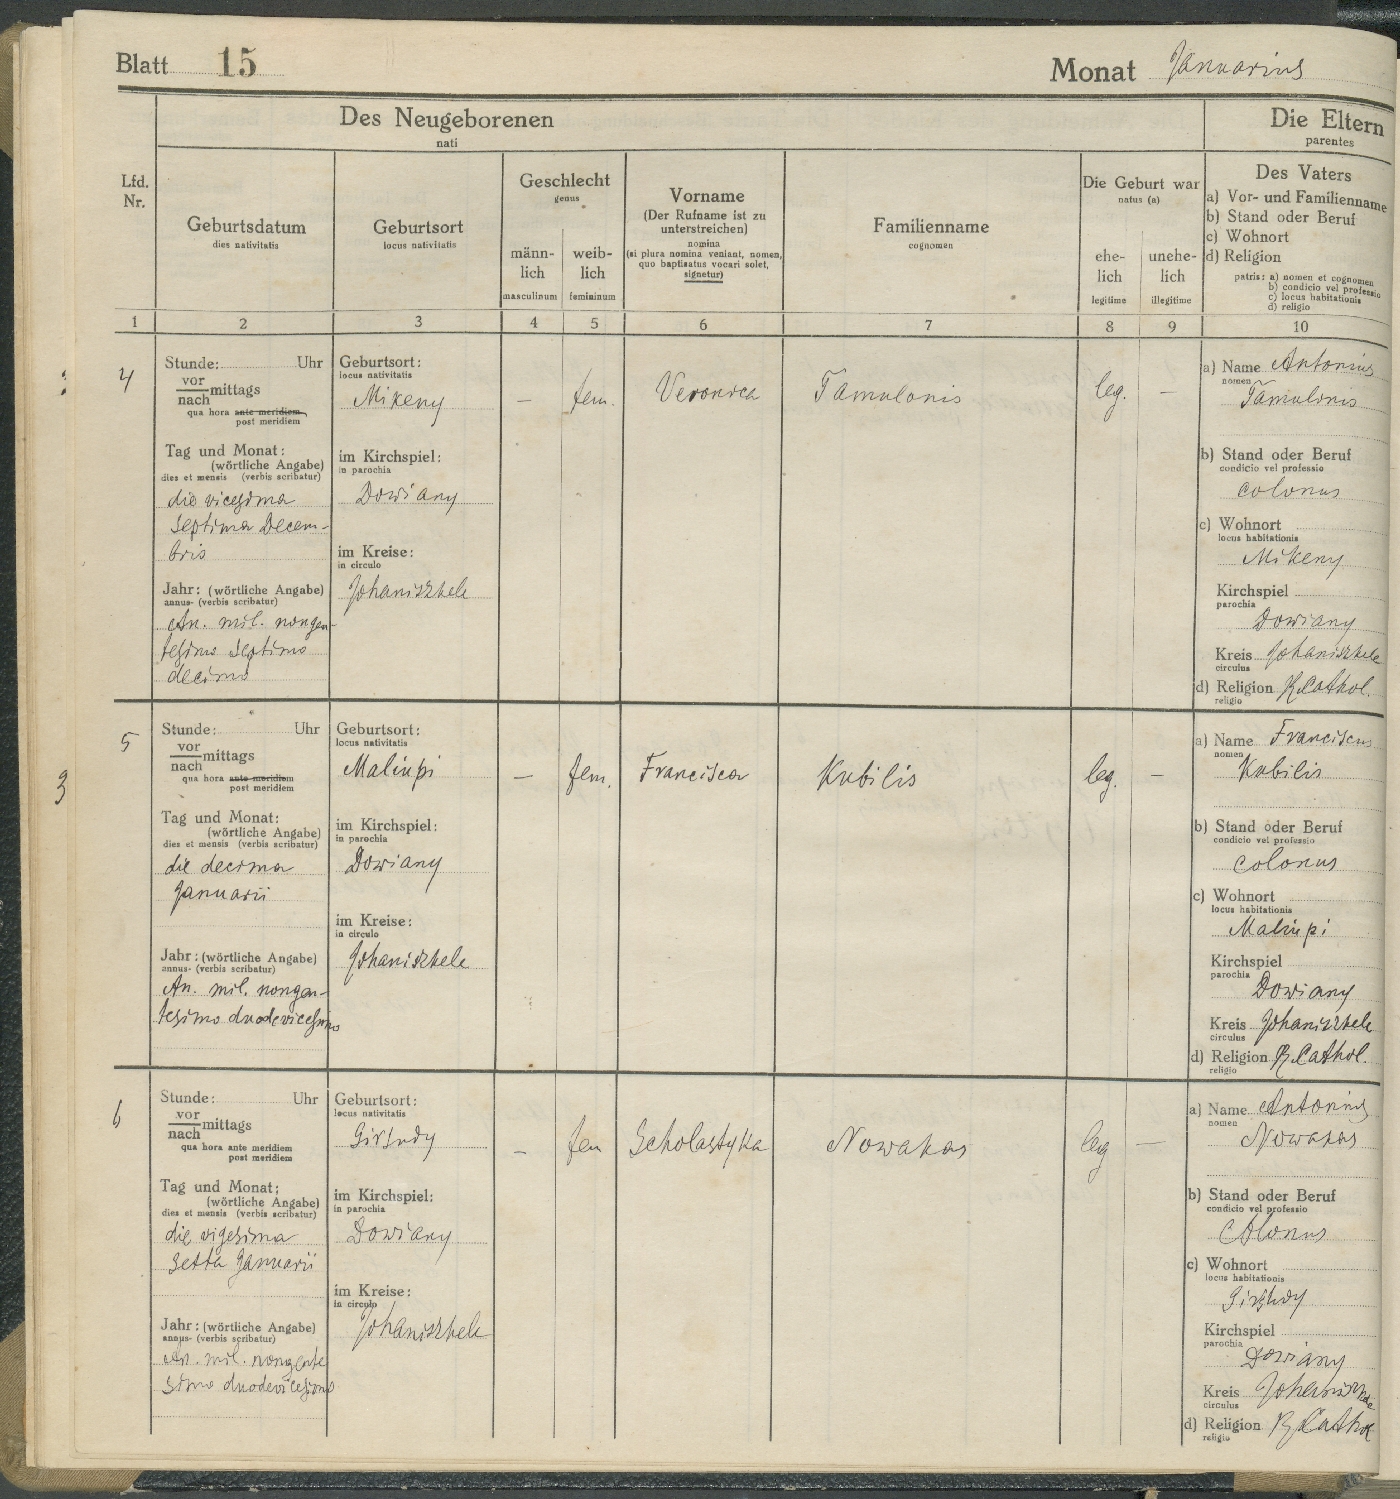 Blatt 15 Monat Januarius
Des Neugeborenen
nati
Die Eltern
parentes
Lfd.
Nr.
Geburtsdatum
dies nativitatis
Geburtsort
locus nativitatis
Geschlecht
genus
männ-
lich
masculinum
weib-
lich
femininum
Vorname
(Der Rufname ist zu
unterstreichen)
nomina
(si plura nomina veniant, nomen,
quo baptisatus vocari solet,
signetur)
Familienname
cognomen
Die Geburt war
natus (a)
ehe-
lich
legitime
unehe-
lich
illegitime
Des Vaters
a) Vor- und Familienname
b) Stand oder Beruf
c) Wohnort
d) Religion
patris: a) nomen et cognomen
b) condicio vel professio
c) locus habitationis
d) religio
1 2 3 4 5 6 7 8 9 10
4
Stunde: Uhr
vor
nach mittags
qua hora ante meridiem
post meridiem
Tag und Monat:
(wörtliche Angabe)
dies et mensis (verbis scribatur)
die vicesima
septima Decem-
bris
Jahr: (wörtliche Angabe)
annus- (verbis scribatur)
An. mil. nongen-
tesimo septimo
decimo
Geburtsort:
locus nativitatis
Mikeny
im Kirchspiel:
in parochia
Dowiany
im Kreise:
in circulo
Johaniszkele
— fem. Veronica Tamulonis leg. —
a) Name Antonius
nomen
Tamulonis
b) Stand oder Beruf
condicio vel professio
colonus
c) Wohnort
locus habitationis
Mikeny
Kirchspiel
parochia
Dowiany
Kreis Johaniszkele
circulus
d) Religion R. Cathol.
religio
3
5
Stunde: Uhr
vor
nach mittags
qua hora ante meridiem
post meridiem
Tag und Monat:
(wörtliche Angabe)
dies et mensis (verbis scribatur)
die decima
Januarii
Jahr: (wörtliche Angabe)
annus- (verbis scribatur)
An. mil. nongen-
tesimo duodevicesimo
Geburtsort:
locus nativitatis
Maliupi
im Kirchspiel:
in parochia
Dowiany
im Kreise:
in circulo
Johaniszkele
— fem. Francisca Kubilis leg. —
a) Name Franciscus
nomen
Kubilis
b) Stand oder Beruf
condicio vel professio
colonus
c) Wohnort
locus habitationis
Maliupi
Kirchspiel
parochia
Dowiany
Kreis Johaniszkele
circulus
d) Religion R. Cathol.
religio
6
Stunde: Uhr
vor
nach mittags
qua hora ante meridiem
post meridiem
Tag und Monat:
(wörtliche Angabe)
dies et mensis (verbis scribatur)
die vigesima
setta Januarii
Jahr: (wörtliche Angabe)
annus- (verbis scribatur)
An. mil. nongente
simo duodevicesimo
Geburtsort:
locus nativitatis
im Kirchspiel:
in parochia
Dowiany
im Kreise:
in circulo
Johaniszkele
— fem Scholastyka Nowakas leg —
a) Name Antonius
nomen
Nowakas
b) Stand oder Beruf
condicio vel professio
Colonus
c) Wohnort
locus habitationis
Kirchspiel
parochia
Dowiany
Kreis Johaniszkele
circulus
d) Religion R. Cathol
religio